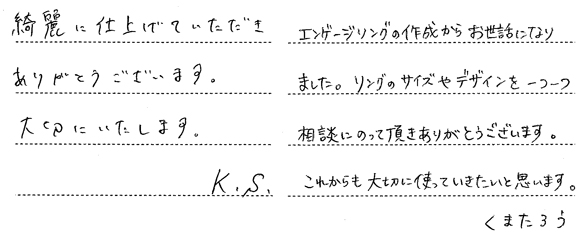 綺麗に仕上げていただき
ありがとうございます。
大切にいたします。
K.S.
エンゲージリングの作成からお世話になり
ました。リングのサイズやデザインを一つ一つ
相談にのって頂きありがとうございます。
これからも大切に使っていきたいと思います。
くまたろう